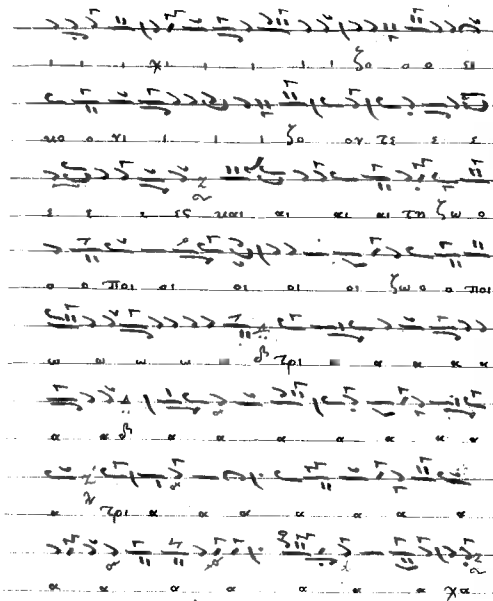 ι ι ι χι ι ι ι ι ζο ο ο ει
κο ο νι ι ι ι ι ζο ον τε ε ε
ε ε ε ες και αι αι αι τη ζω ο
ο ο ποι οι οι οι οι ζω ο ο ποι
ω ω ω ω τρι α α α α
α α α α α α α α α
α τρι α α α α α α α
α α α α α α α α χα